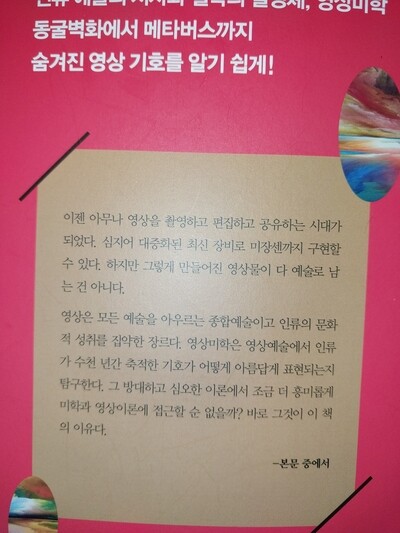 영상미학
동굴벽화에서 메타버스까지
숨겨진 영상 기호를 알기 쉽게!
이젠 아무나 영상을 촬영하고 편집하고 공유하는 시대가
되었다. 심지어 대중화된 최신 장비로 미장센까지 구현할
수 있다. 하지만 그렇게 만들어진 영상물이 다 예술로 남
는 건 아니다.
영상은 모든 예술을 아우르는 종합예술이고 인류의 문화
적 성취를 집약한 장르다. 영상미학은 영상예술에서 인류
가 수천 년간 축적한 기호가 어떻게 아름답게 표현되는지
탐구한다. 그 방대하고 심오한 이론에서 조금 더 흥미롭게
미학과 영상이론에 접근할 순 없을까? 바로 그것이 이 책
의 이유다.
-본문 중에서